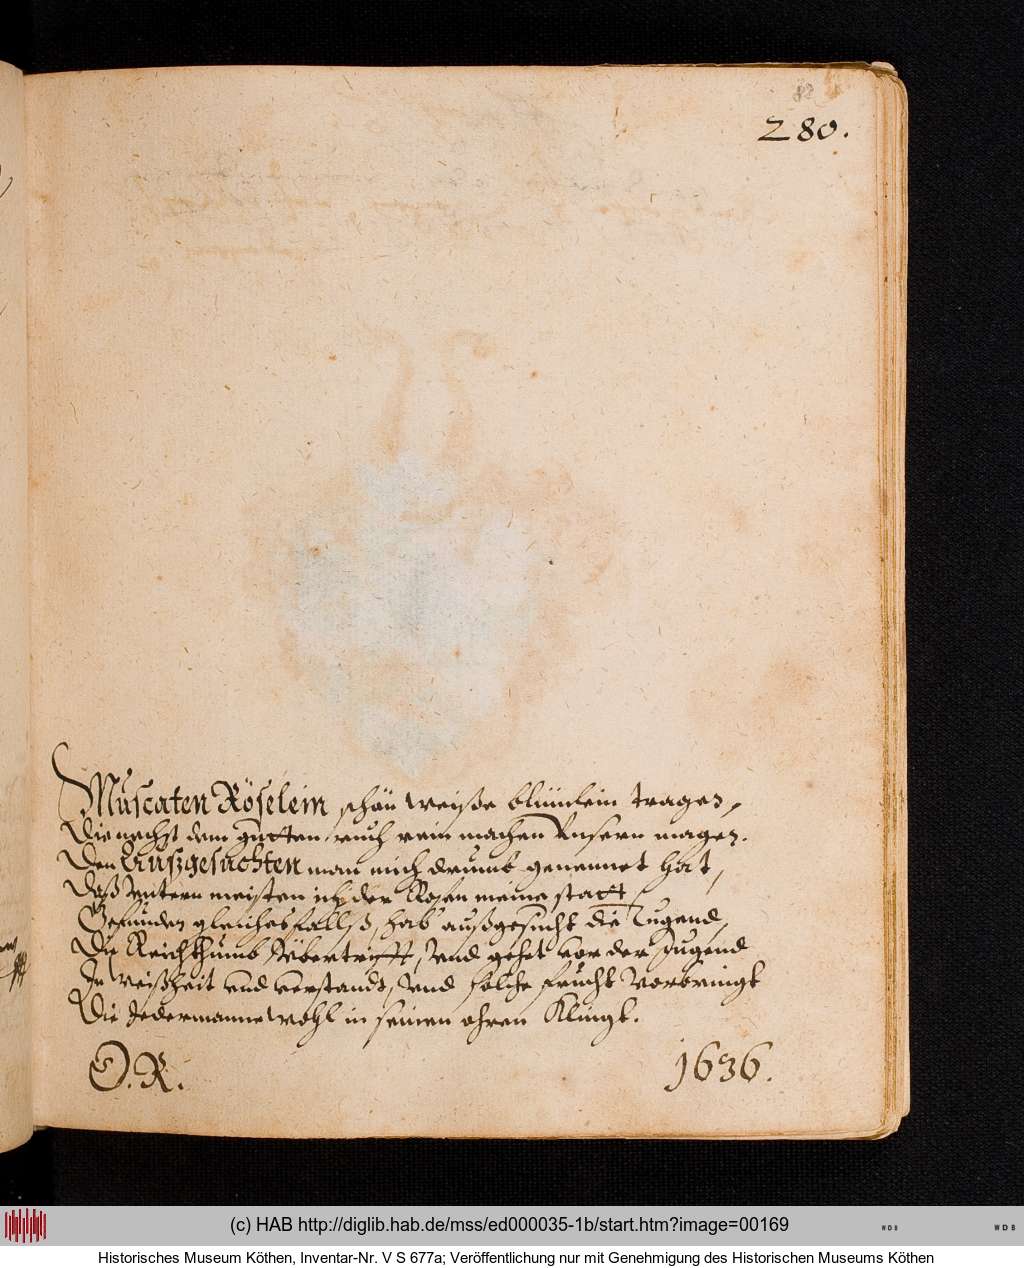 88
280.
Muscaten Röselein schön weiße blümlein tragen,
Die nechst dem gutten ruch rein machen Unsern magen.
Den Auszgesuchten man mich drumb genennet hat,
Daß entern meisten ich der Rosen meine statt
Gefunden gleichesfallß, hab außgesucht die Tugend,
Die Reichthumb Übertrifft, Und gehet vor der Jugend
In weißheit und verstandt, Und solche frucht Vorbringt
Die Jedermanne wohl in seinen ohren Klingt.
O. R. 1636.
(c) HAB http://diglib.hab.de/mss/ed000035-1b/start.htm?image=00169
WDB WDB
Historisches Museum Köthen, Inventar-Nr. V S 677a; Veröffentlichung nur mit Genehmigung des Historischen Museums Köthen